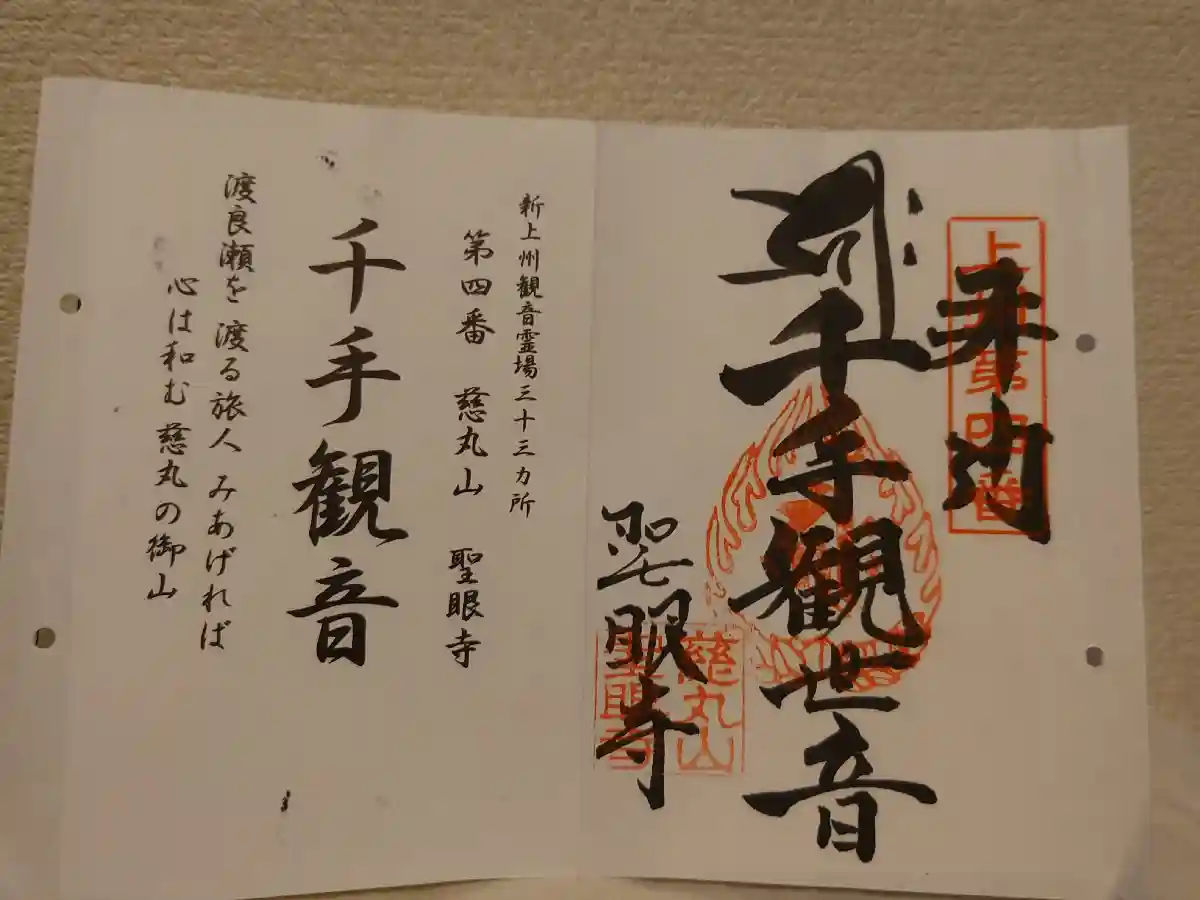 上州第四番
千手観世音
聖眼寺
慈丸山
聖眼寺
新上州観音霊場三十三カ所
第四番 慈丸山 聖眼寺
千手観音
渡良瀬を渡る旅人みあげれば
心は和む慈丸の御山